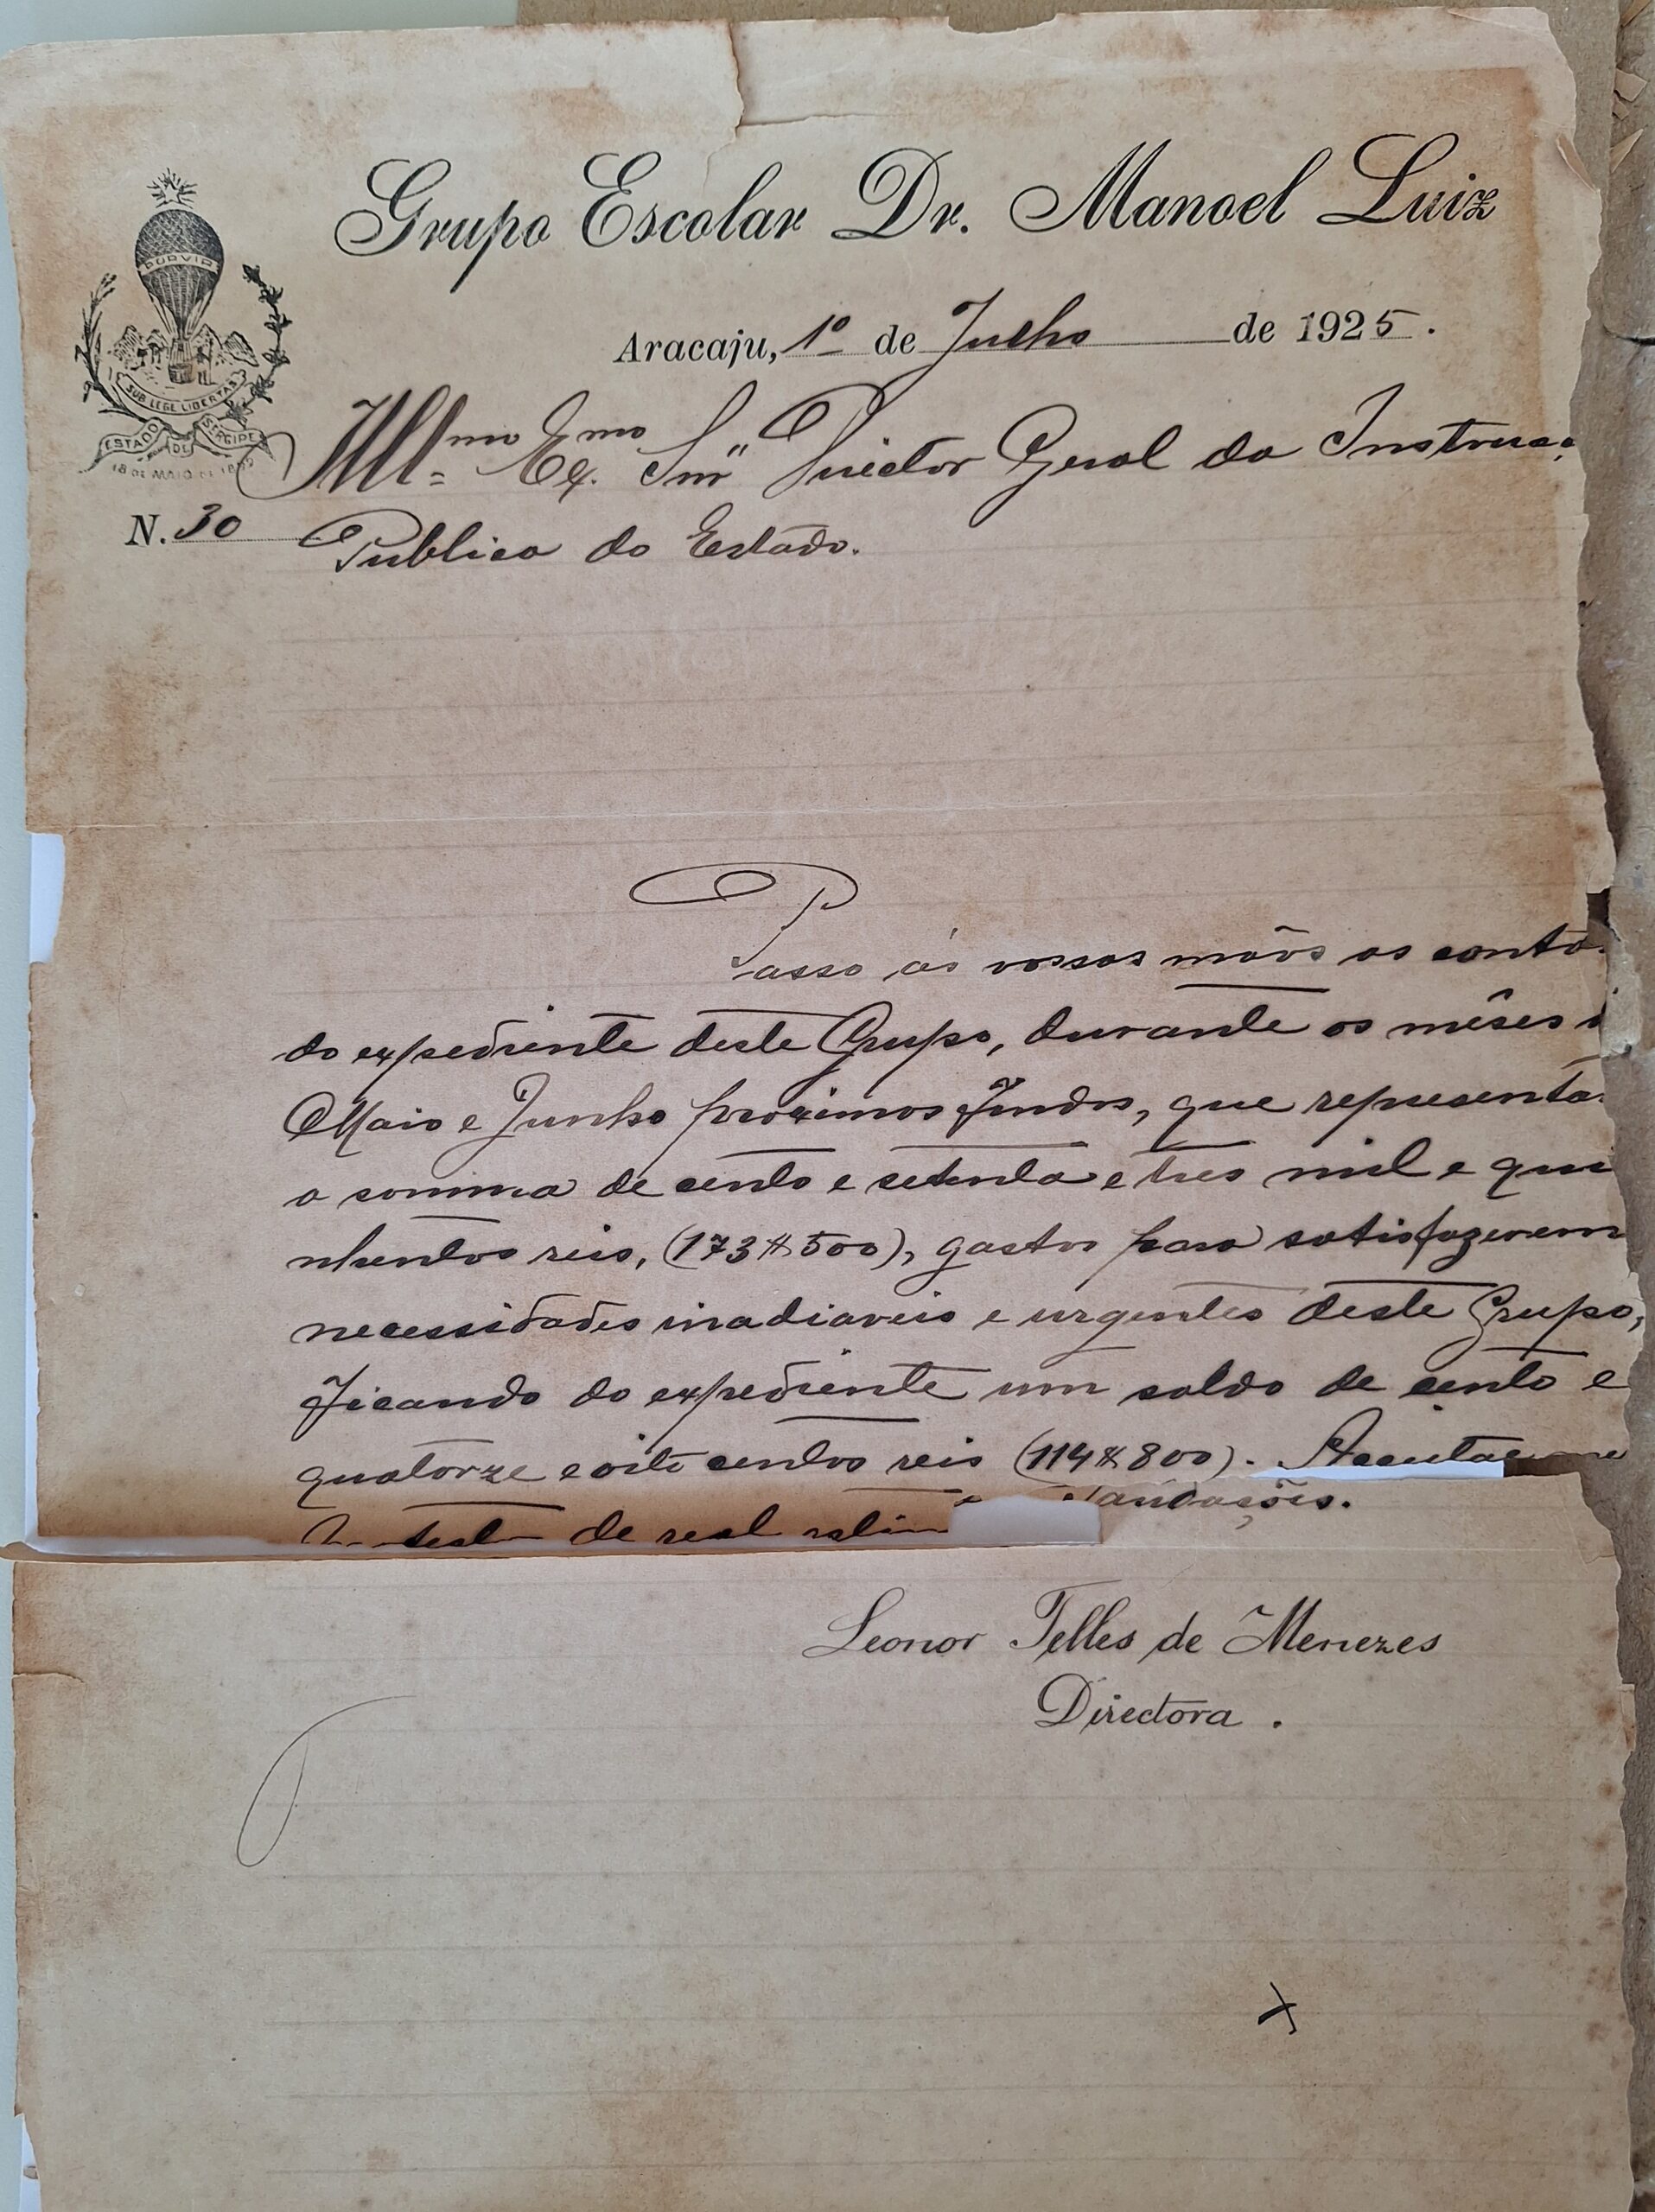 Grupo Escolar Dr. Manoel Luiz
PORVIR
SUB LEGE LIBERTAS
ESTADO DE SERGIPE
18 DE MAIO DE 1892
Aracaju, 1º de Julho de 1925.
Illmo Ex.mo Snr Director Geral da Instrucç
N. 30
Publica do Estado.
Passo ás vossas mãos as conta
do expediente deste Grupo, durante os mêses d
Maio e Junho proximos findos, que representa
a somma de cento e setenta e tres mil e qui
nhentos reis, (173$500), gastos para satisfazerem
necessidades inadiaveis e urgentes deste Grupo,
ficando do expediente um saldo de cento e
quatorze e oito centos reis (114$800).
de real estim
Saudações.
Leonor Telles de Menezes
Directora.